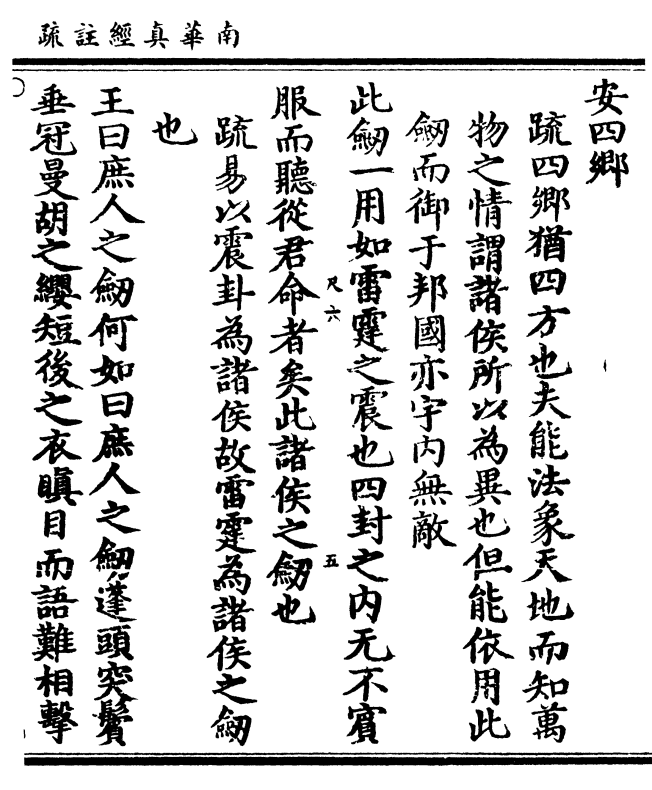 南華真經註疏
安四鄉
疏四鄉猶四方也夫能法象天地而知萬
物之情謂諸侯所以為異也但能依用此
劒而御于邦國亦宇内無敵
此劒一用如雷霆之震也四封之内无不賓
尺六
五
服而聽從君命者矣此諸侯之劒也
疏易以震卦為諸侯故雷霆為諸侯之劒
也
王曰庶人之劒何如曰庶人之劒蓬頭突鬢
垂冠曼胡之纓短後之衣瞋目而語難相擊